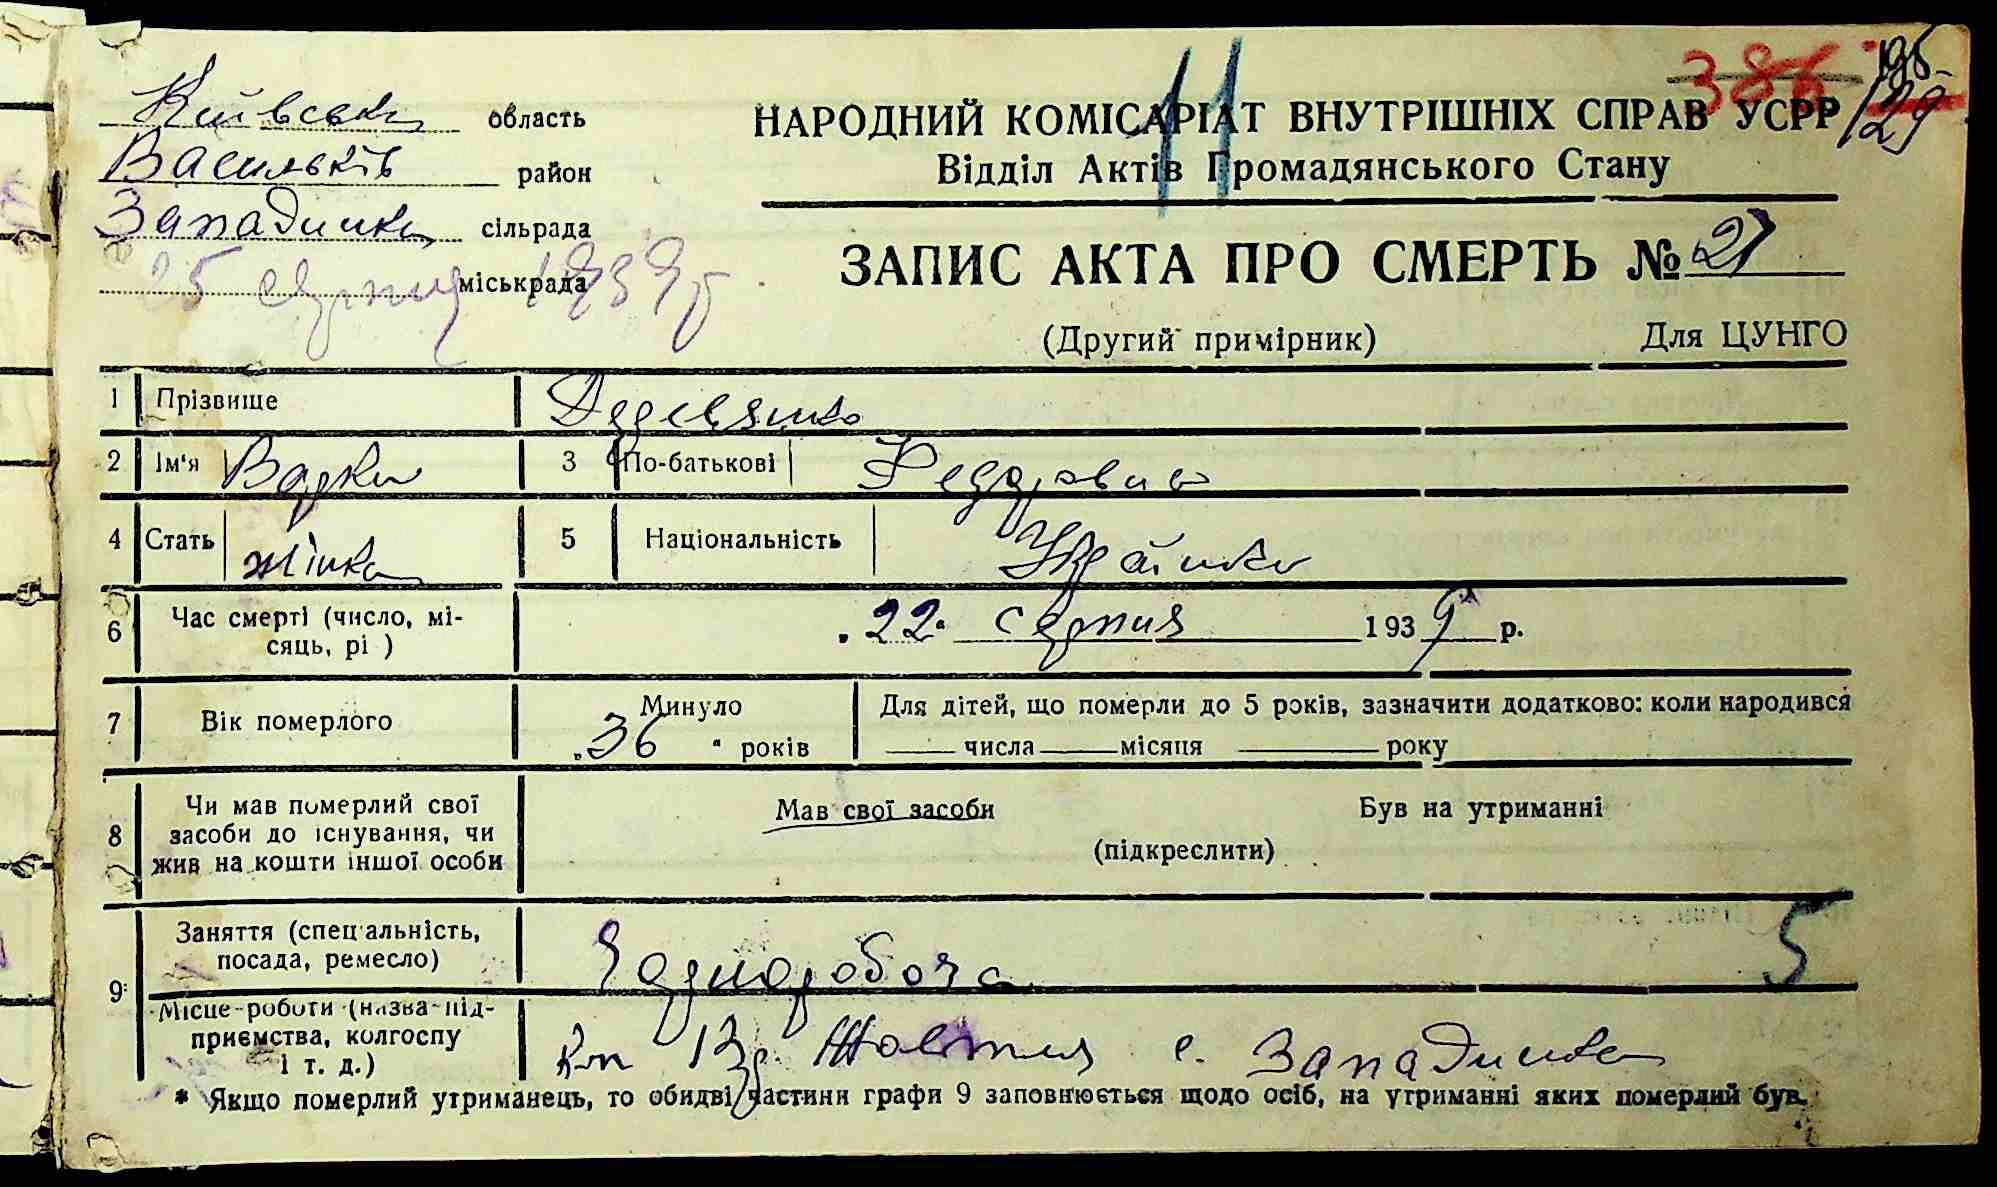 386 195
129
11
Київська область
Васильків район
Западинка сільрада
25 серпня 1939 р. міськрада
НАРОДНИЙ КОМІСАРІАТ ВНУТРІШНІХ СПРАВ УСРР
Відділ Актів Громадянського Стану
ЗАПИС АКТА ПРО СМЕРТЬ № 21
(Другий примірник) Для ЦУНГО
1 Прізвище
2 Ім'я Варка 3 По-батькові Федоровна
4 Стать жінка 5 Національність Украінка
6 Час смерті (число, мі-
сяць, рі ) „22" серпня 1939 р.
7 Вік померлого Минуло „36" років
Для дітей, що померли до 5 років, зазначити додатково: коли народився
числа місяця року
8 Чи мав померлий свої
засоби до існування, чи
жив на кошти іншої особи
Мав свої засоби Був на утриманні
(підкреслити)
9 Заняття (спеціальність,
посада, ремесло) 5
Місце роботи (назва під-
приємства, колгоспу
і т. д.) Жовтня с. Западинка
* Якщо померлий утриманець, то обидві частини графи 9 заповнюється щодо осіб, на утриманні яких померлий був.